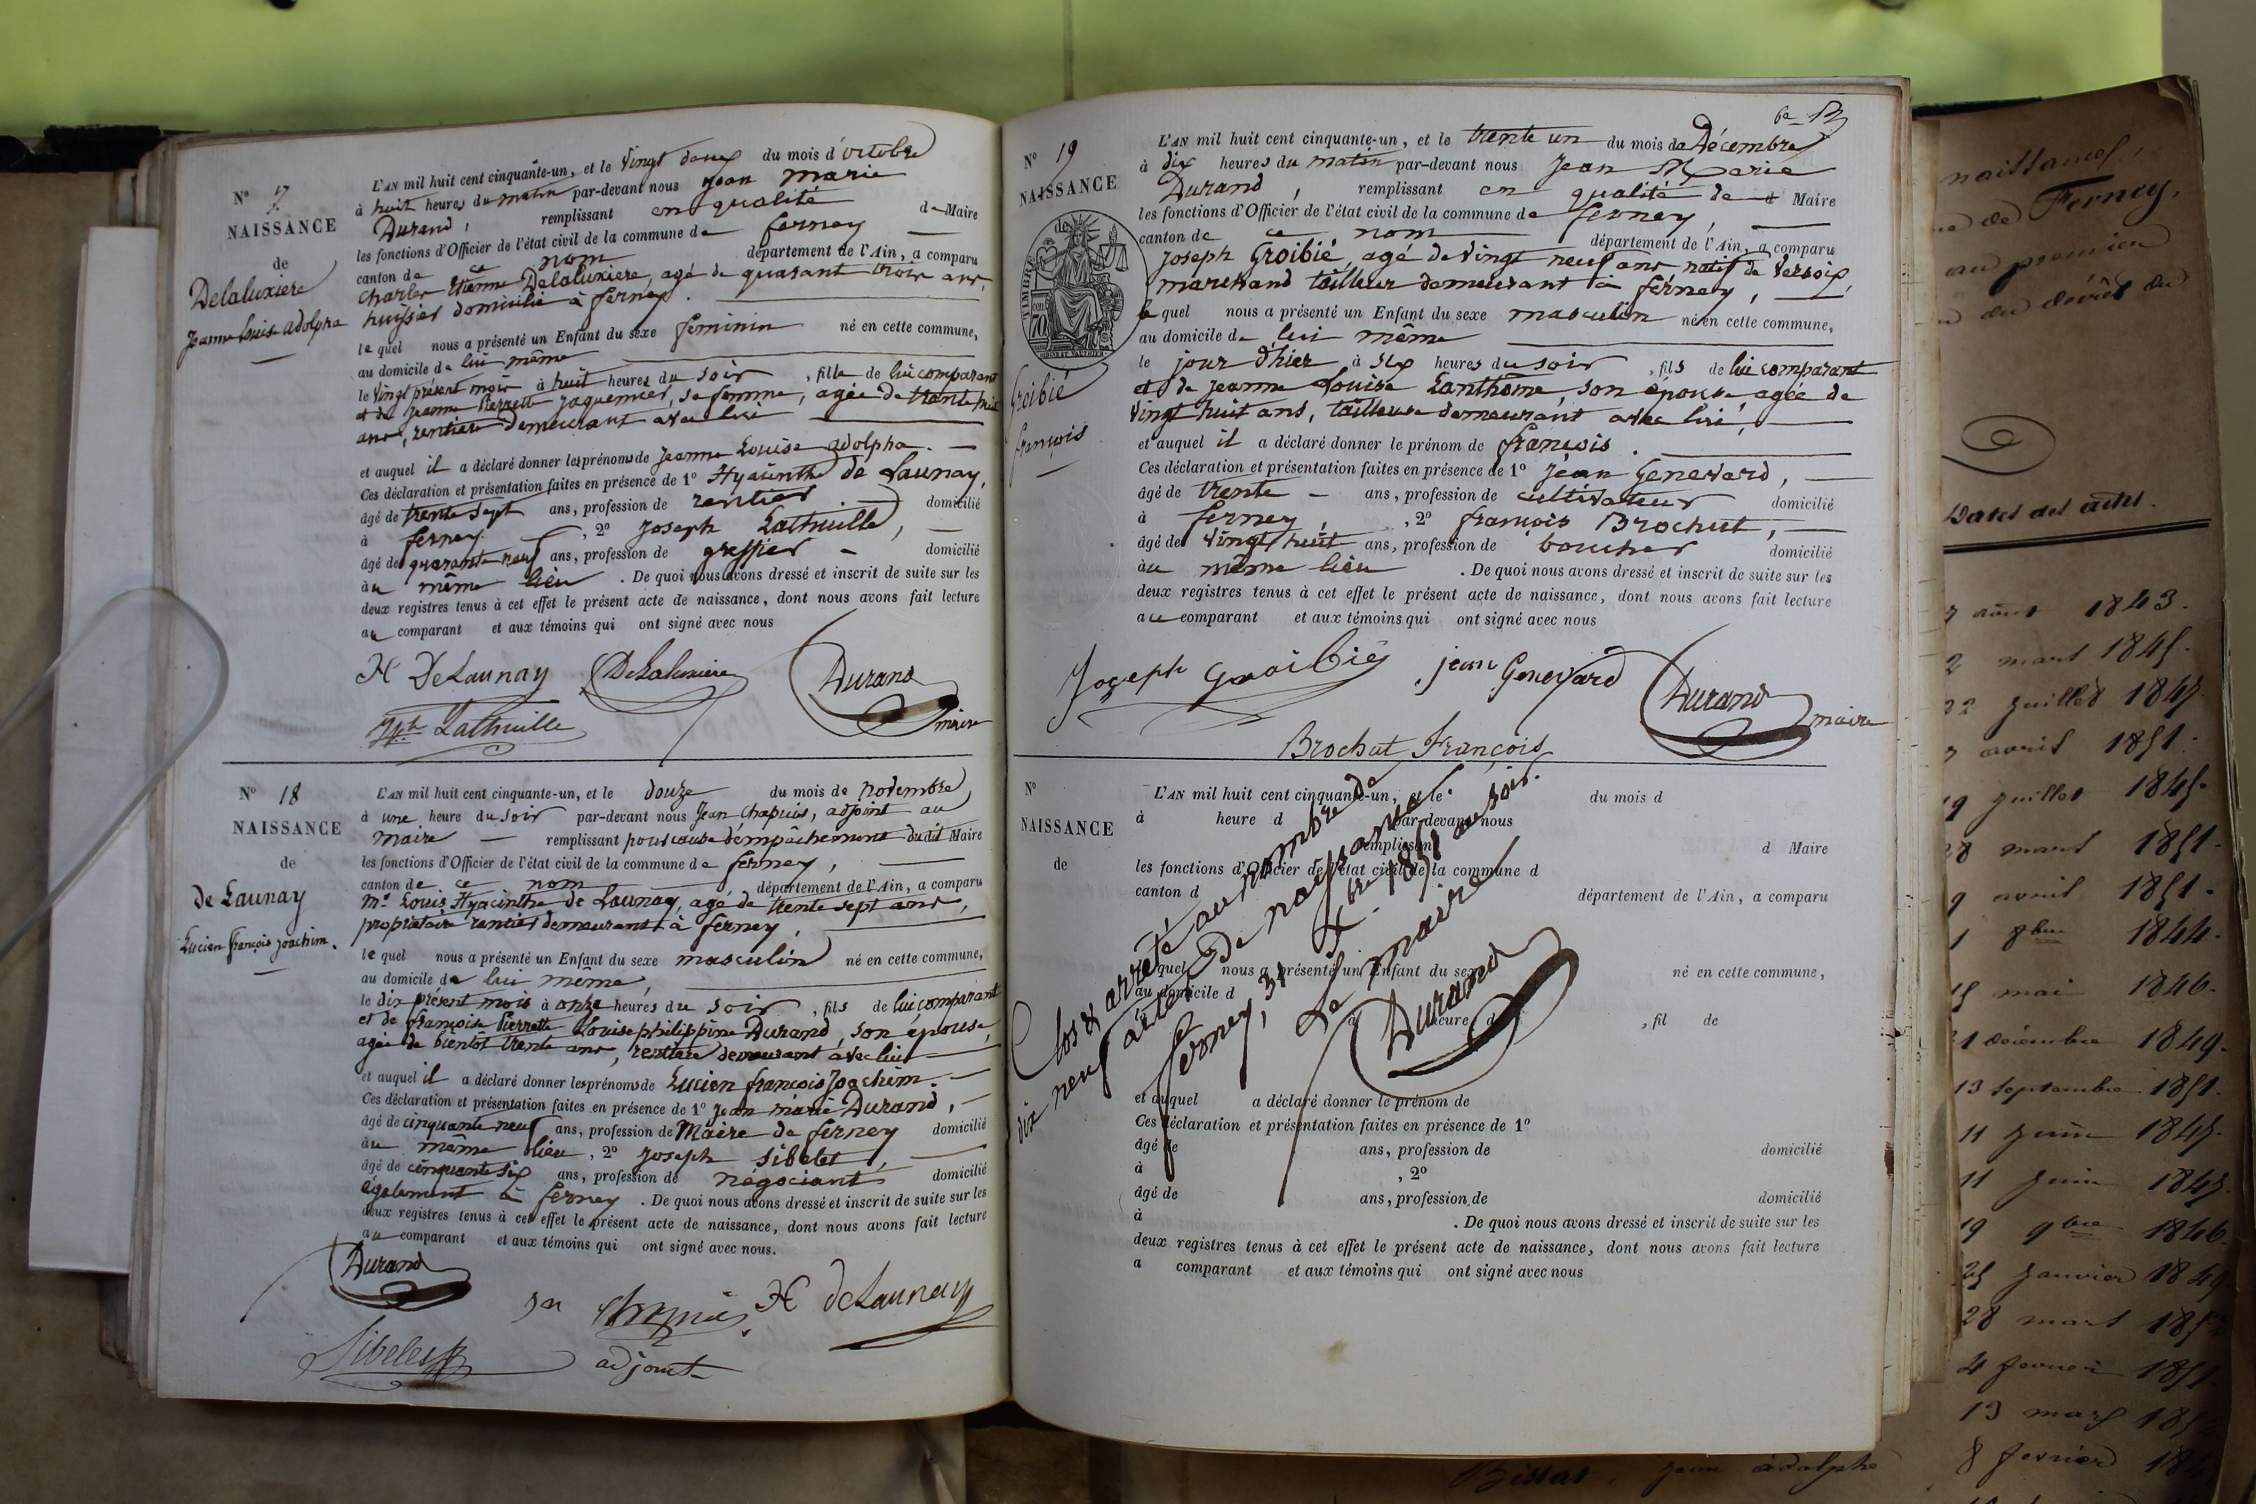 N° 17
NAISSANCE
de
Delaluxiere
Jeanne Louise adolpha
L'AN mil huit cent cinquante-un, et le vingt deux du mois d'octobre
à huit heures du matin par-devant nous Jean Marie
Durand, remplissant en qualité de Maire
les fonctions d'Officier de l'état civil de la commune de ferney
canton de ce nom département de l'Ain, a comparu
Charles Etienne Delaluxiere, agé de quarant trois ans,
huissier domicilié à ferney.
lequel nous a présenté un Enfant du sexe feminin né en cette commune,
au domicile de lui même
le vingt présent mois à huit heures du soir, fille de lui comparant
et de Jeanne Pierrette Jaquemier, sa femme, agée de trente huit
ans, rentiere demeurant avec lui
et auquel il a déclaré donner les prénoms de Jeanne Louise adolpha.
Ces déclaration et présentation faites en présence de 1° Hyacinthe de Launay,
âgé de trente sept ans, profession de rentier domicilié
à ferney, 2° Joseph Lathuille,
âgé de quarante neuf ans, profession de greffier domicilié
au même lieu. De quoi nous avons dressé et inscrit de suite sur les
deux registres tenus à cet effet le présent acte de naissance, dont nous avons fait lecture
au comparant et aux témoins qui ont signé avec nous
H DeLaunay DeLaluxiere Durand
maire
Jph Lathuille
N° 18
NAISSANCE
de
de Launay
Lucien françois Joachim.
L'AN mil huit cent cinquante-un, et le douze du mois de novembre
à une heure du soir par-devant nous Jean Chapuis, adjoint au
maire remplissant pour cause d'empâchement dudit Maire
les fonctions d'Officier de l'état civil de la commune de ferney,
canton de ce nom département de l'Ain, a comparu
Mr. Louis Hyacinthe de Launay, agé de trente sept ans,
propriétaire rentier demeurant à ferney,
lequel nous a présenté un Enfant du sexe masculin né en cette commune,
au domicile de lui même,
le dix présent mois à onze heures du soir, fils de lui comparant
et de françoise Pierrette Louise philippine Durand, son épouse,
agée de bientôt trente ans, rentiere demeurant avec lui
et auquel il a déclaré donner les prénoms de Lucien françois Joachim.
Ces déclaration et présentation faites en présence de 1° Jean marie Durand,
âgé de cinquante neuf ans, profession de Maire de ferney domicilié
au même lieu, 2° Joseph Sibelet,
âgé de cinquante six ans, profession de négociant domicilié
également à ferney. De quoi nous avons dressé et inscrit de suite sur les
deux registres tenus à cet effet le présent acte de naissance, dont nous avons fait lecture
au comparant et aux témoins qui ont signé avec nous.
Durand
Jn Chapuis H deLaunay
Sibelet
adjoint
N° 19
NAISSANCE
de
TIMBRE
70
Groibié
françois
L'AN mil huit cent cinquante-un, et le trente un du mois de Décembre
à dix heures du matin par-devant nous Jean Marie
Durand, remplissant en qualité de Maire
les fonctions d'Officier de l'état civil de la commune de ferney,
canton de ce nom département de l'Ain, a comparu
Joseph Groibié, agé de vingt neuf ans natif de Versoix,
marchand tailleur demeurant à ferney,
lequel nous a présenté un Enfant du sexe masculin né en cette commune,
au domicile de lui même
le jour d'hier à six heures du soir, fils de lui comparant
et de Jeanne Louise Lanthôme, son épouse, agée de
vingt huit ans, tailleuse demeurant avec lui,
et auquel il a déclaré donner le prénom de françois.
Ces déclaration et présentation faites en présence de 1° Jean Genevard,
âgé de trente ans, profession de cultivateur domicilié
à ferney, 2° françois Brochut,
âgé de vingt huit ans, profession de boucher domicilié
au même lieu. De quoi nous avons dressé et inscrit de suite sur les
deux registres tenus à cet effet le présent acte de naissance, dont nous avons fait lecture
au comparant et aux témoins qui ont signé avec nous
Joseph Groibié jean Genevard Durand
maire
Brochut François
N°
NAISSANCE
de
L'AN mil huit cent cinquante-un, et le du mois d
à heure d par-devant nous
remplissant d Maire
les fonctions d'Officier de l'état civil de la commune d
canton d département de l'Ain, a comparu
quel nous a présenté un Enfant du sexe né en cette commune,
au domicile d
à heure d , fil de
et auquel a déclaré donner le prénom de
Ces déclaration et présentation faites en présence de 1°
âgé de ans, profession de domicilié
à , 2°
âgé de ans, profession de domicilié
à . De quoi nous avons dressé et inscrit de suite sur les
deux registres tenus à cet effet le présent acte de naissance, dont nous avons fait lecture
a comparant et aux témoins qui ont signé avec nous
Clos & arrêté au nombre de
dix neuf actes de naissance.
ferney, 31 Xbre 1851 au soir.
Le maire
Durand
naissances,
de Ferney,
au premier
du décret du
Dates des actes.
août 1843.
2 mars 1845.
22 juillet 1847.
avril 1851.
19 juillet 1845.
28 mars 1851.
9 avril 1851.
1 8bre 1844.
15 mai 1846.
31 décembre 1849.
13 septembre 1851.
11 juin 1847.
11 juin 1847.
19 9bre 1846.
25 janvier 1849
28 mars
4 fevrier 1851.
13 mars
8 fevrier
Bissat, jean adolphe